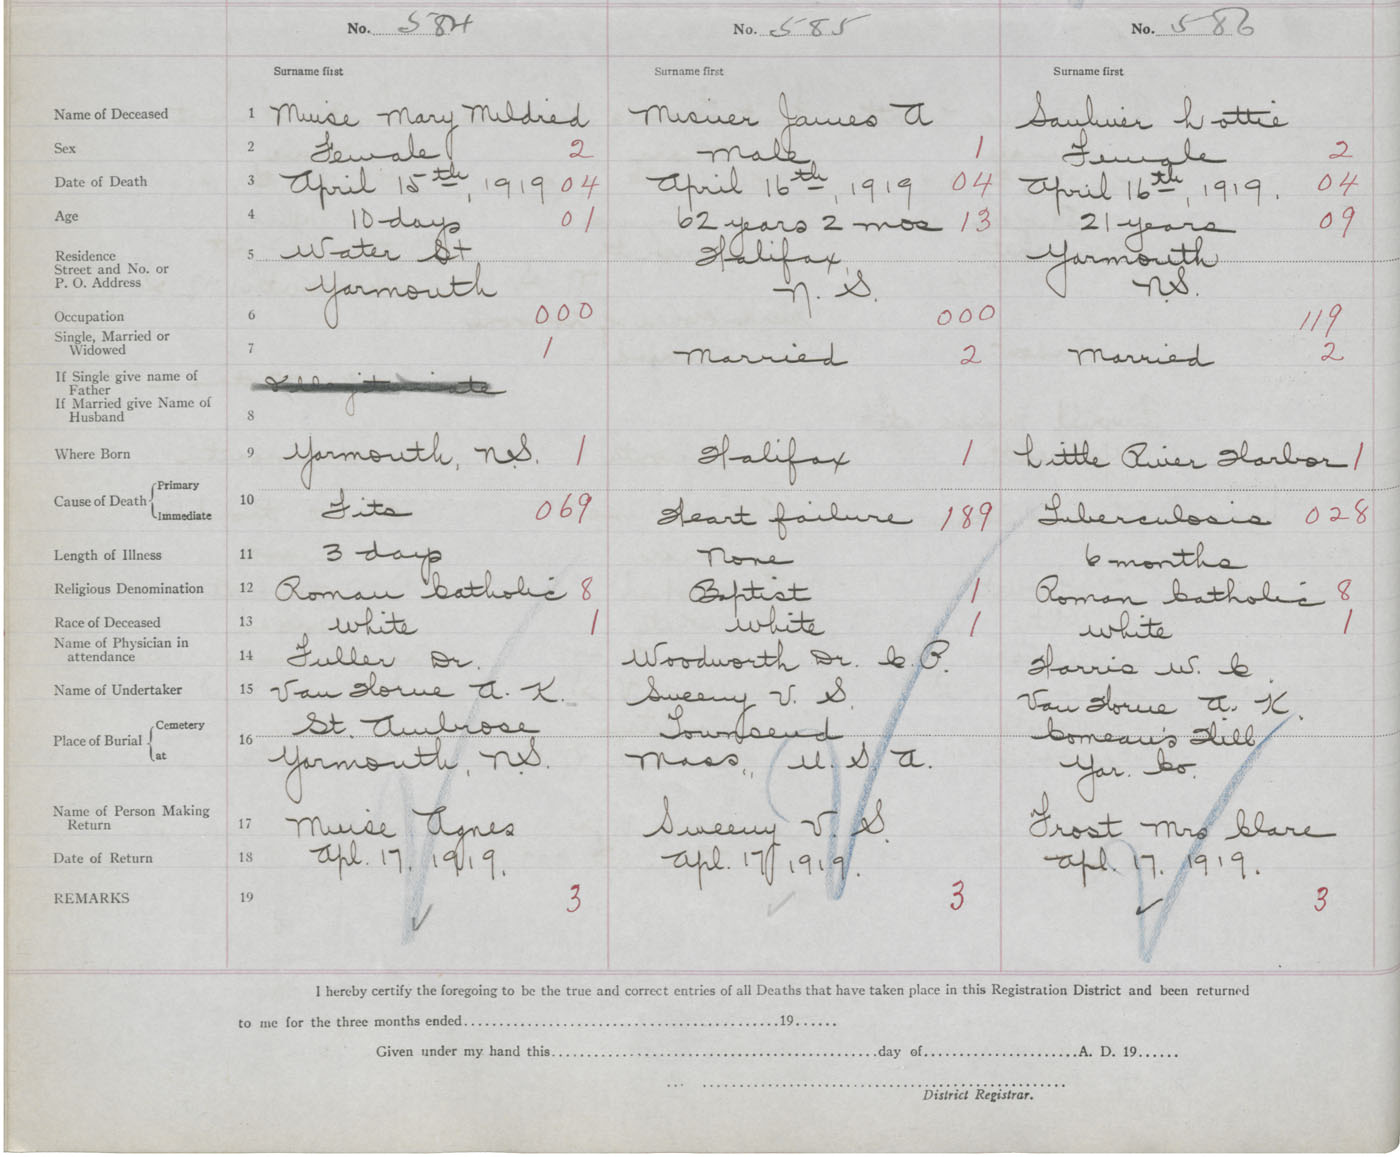 No. 584 No. 585 No. 586
Surname first Surname first Surname first
Name of Deceased 1 Muise Mary Mildred Misner James A Saulnier Lottie
Sex 2 Female 2 Male 1 Female 2
Date of Death 3 April 15th, 1919 04 April 16th, 1919 04 April 16th, 1919. 04
Age 4 10 days 01 62 years 2 mos 13 21 years 09
Residence 5 Water St Halifax, Yarmouth
Street and No. or
P. O. Address Yarmouth N. S. N.S.
Occupation 6 000 000 119
Single, Married or
Widowed 7 1 Married 2 Married 2
If Single give name of
Father Illegitimate
If Married give Name of
Husband 8
Where Born 9 Yarmouth, N.S. 1 Halifax 1 Little River Harbor 1
Cause of Death Primary
Immediate 10 Fits 069 Heart failure 189 Tuberculosis 028
Length of Illness 11 3 days None 6 months
Religious Denomination 12 Roman Catholic 8 Baptist 1 Roman Catholic 8
Race of Deceased 13 White 1 White 1 White 1
Name of Physician in
attendance 14 Fuller Dr. Woodworth Dr. C. P. Harris W. C.
Name of Undertaker 15 Van Horne A. K. Sweeny V. S. Van Horne A. K.
Place of Burial Cemetery 16 St. Ambrose Townsend Comeau's Hill
at Yarmouth, N.S. Mass., U. S. A. Yar. Co.
Name of Person Making
Return 17 Muise Agnes Sweeny V. S. Frost Mrs Clare
Date of Return 18 Apl. 17, 1919. Apl. 17, 1919. Apl. 17, 1919.
REMARKS 19 3 3 3
I hereby certify the foregoing to be the true and correct entries of all Deaths that have taken place in this Registration District and been returned
to me for the three months ended..........19......
Given under my hand this..........day of..........A. D. 19......
District Registrar.